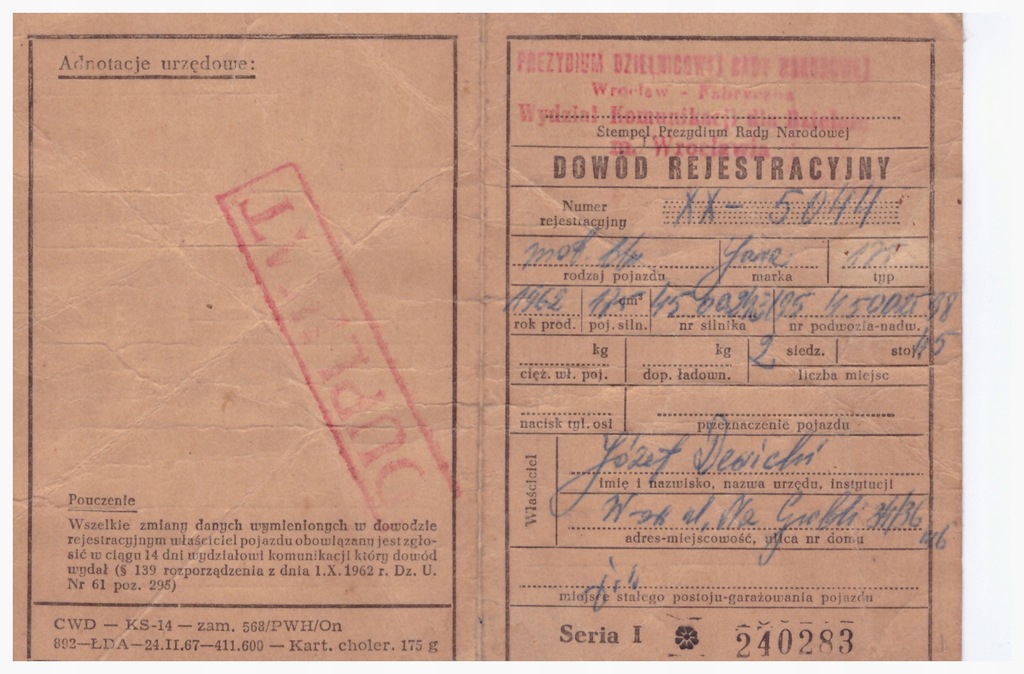 Adnotacje urzędowe:
DUPLIKAT
Pouczenie
Wszelkie zmiany danych wymienionych w dowodzie
rejestracyjnym właściciel pojazdu obowiązany jest zgło-
sić w ciągu 14 dni wydziałowi komunikacji który dowód
wydał (§ 139 rozporządzenia z dnia 1.X.1962 r. Dz. U.
Nr 61 poz. 295)
CWD — KS-14 — zam. 568/PWH/On
892—ŁDA—24.II.67—411.600 — Kart. choler. 175 g
PREZYDIUM DZIELNICOWEJ RADY NARODOWEJ
Wrocław - Fabryczna
Wydział Komunikacji dla Dzielnic
Stempel Prezydium Rady Narodowej
m. Wrocławia
DOWÓD REJESTRACYJNY
Numer rejestracyjny XX- 5044
mot. Jawa 175
rodzaj pojazdu marka typ
1962 175 cm³
rok prod. poj. siln. nr silnika nr podwozia-nadw.
kg kg 2 siedz. stoj.
cięż. wł. poj. dop. ładown. liczba miejsc
nacisk tyl. osi przeznaczenie pojazdu
Właściciel
Józef Dewicki
imię i nazwisko, nazwa urzędu, instytucji
W-aw ul. Na Grobli
adres-miejscowość, ulica nr domu
j.w
miejsce stałego postoju-garażowania pojazdu
Seria I 240283